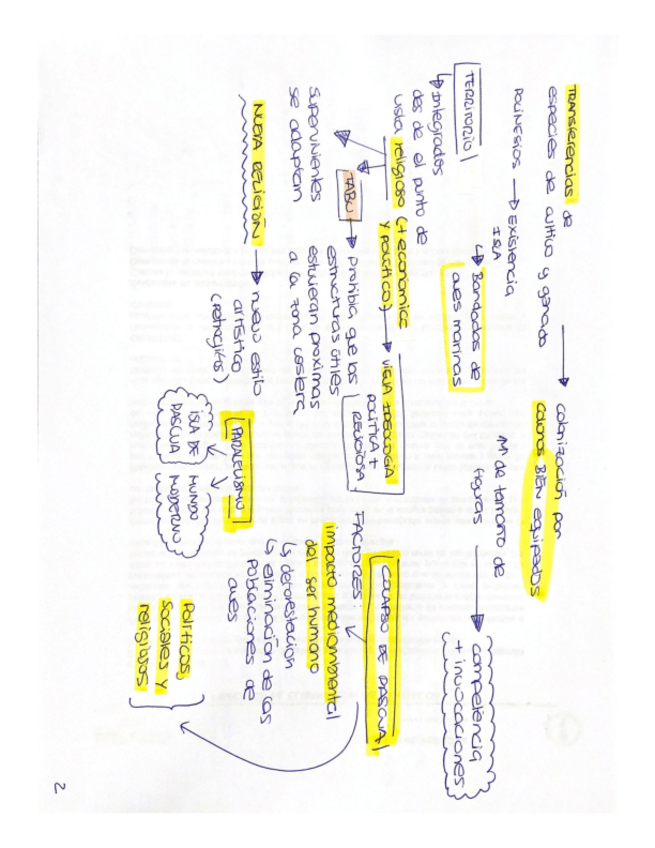 TRANSFERENCIAS de
especies de cultivo y ganado → colonización por
colonos BIEN equipados
POLINESIOS → Existencia
ISLA
↳ Bandadas de
aves marinas
↑↑ de tamaño de
figuras → competencia
+ invocaciones
TERRITORIO
↳ Integrados
des de el punto de
vista religioso (+ económico
y político) → VIEJA IDEOLOGÍA
POLÍTICA +
RELIGIOSA
TABÚ → prohibía que las
estructuras útiles
estuvieran próximas
a la zona costera
supervivientes
se adaptan
NUEVA RELIGIÓN → nuevo estilo
artístico
(petroglifos)
COLAPSO DE PASCUA
FACTORES:
impacto medioambiental
del ser humano
↳ deforestación
↳ eliminación de las
Poblaciones de
aves
Políticos,
sociales y
religiosos
PARALELISMO
ISLA DE
PASCUA
MUNDO
MODERNO
2